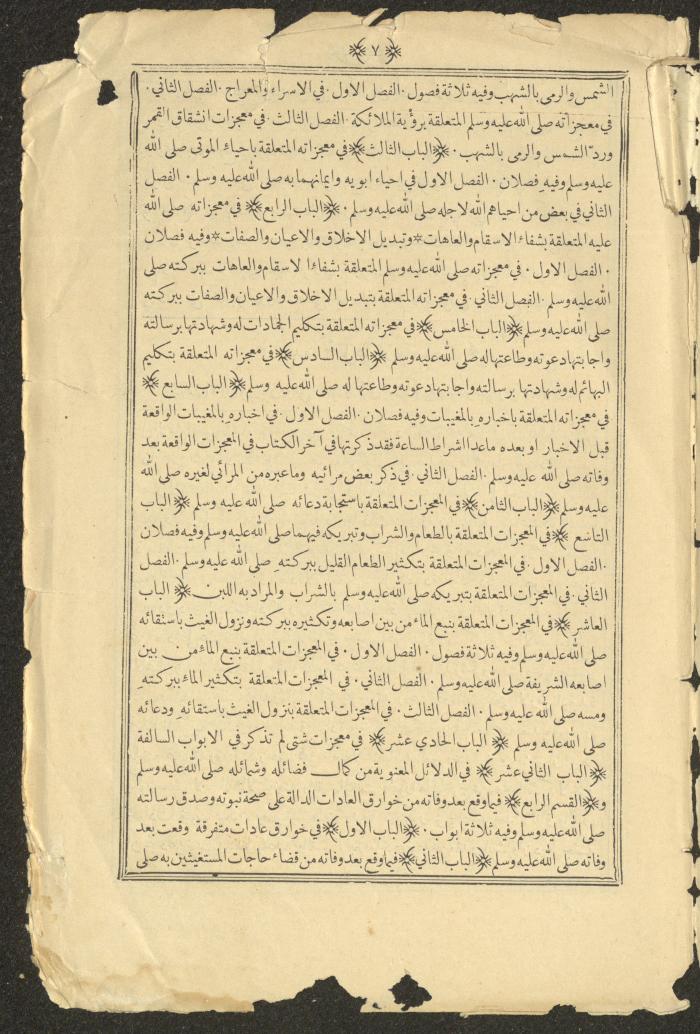 ﴿ ٧ ﴾
الشمس والرمى بالشهب وفيه ثلاثة فصول . الفصل الاول . في الاسراء والمعراج . الفصل الثاني .
في معجزاته صلى الله عليه وسلم المتعلقة برؤية الملائكة . الفصل الثالث . في معجزات انشقاق القمر
وردّ الشمس والرمى بالشهب . ﴿ الباب الثالث ﴾ في معجزاته المتعلقة باحياء الموتى صلى الله
عليه وسلم وفيه فصلان . الفصل الاول في احياء ابويه وايمانهما به صلى الله عليه وسلم . الفصل
الثاني في بعض من احياهم الله لاجله صلى الله عليه وسلم . ﴿ الباب الرابع ﴾ في معجزاته صلى الله
عليه المتعلقة بشفاء الاسقام والعاهات * وتبديل الاخلاق والاعيان والصفات * وفيه فصلان
. الفصل الاول . في معجزاته صلى الله عليه وسلم المتعلقة بشفاء الاسقام والعاهات ببركته صلى
الله عليه وسلم . الفصل الثاني . في معجزاته المتعلقة بتبديل الاخلاق والاعيان والصفات ببركته
صلى الله عليه وسلم ﴿ الباب الخامس ﴾ في معجزاته المتعلقة بتكليم الجمادات له وشهادتها برسالته
واجابتها دعوته وطاعتها له صلى الله عليه وسلم ﴿ الباب السادس ﴾ في معجزاته المتعلقة بتكليم
البهائم له وشهادتها برسالته واجابتها دعوته وطاعتها له صلى الله عليه وسلم ﴿ الباب السابع ﴾
في معجزاته المتعلقة باخباره بالمغيبات وفيه فصلان . الفصل الاول . في اخباره بالمغيبات الواقعة
قبل الاخبار او بعده ماعدا اشراط الساعة فقد ذكرتها في آخر الكتاب في المعجزات الواقعة بعد
وفاته صلى الله عليه وسلم . الفصل الثاني . في ذكر بعض مرائيه وماعبره من المرائي لغيره صلى الله
عليه وسلم ﴿ الباب الثامن ﴾ في المعجزات المتعلقة باستجابة دعائه صلى الله عليه وسلم ﴿ الباب
التاسع ﴾ في المعجزات المتعلقة بالطعام والشراب وتبريكه فيهما صلى الله عليه وسلم وفيه فصلان
. الفصل الاول . في المعجزات المتعلقة بتكثير الطعام القليل ببركته صلى الله عليه وسلم . الفصل
الثاني . في المعجزات المتعلقة بتبريكه صلى الله عليه وسلم بالشراب والمراد به اللبن ﴿ الباب
العاشر ﴾ في المعجزات المتعلقة بنبع الماء من بين اصابعه وتكثيره ببركته ونزول الغيث باستقائه
صلى الله عليه وسلم وفيه ثلاثة فصول . الفصل الاول . في المعجزات المتعلقة بنبع الماء من بين
اصابعه الشريفة صلى الله عليه وسلم . الفصل الثاني . في المعجزات المتعلقة بتكثير الماء ببركته
ومسه صلى الله عليه وسلم . الفصل الثالث . في المعجزات المتعلقة بنزول الغيث باستقائه ودعائه
صلى الله عليه وسلم ﴿ الباب الحادي عشر ﴾ في معجزات شتى لم تذكر في الابواب السالفة
﴿ الباب الثاني عشر ﴾ في الدلائل المعنوية من كمال فضائله وشمائله صلى الله عليه وسلم
و ﴿ القسم الرابع ﴾ فيما وقع بعد وفاته من خوارق العادات الدالة على صحة نبوته وصدق رسالته
صلى الله عليه وسلم وفيه ثلاثة ابواب . ﴿ الباب الاول ﴾ في خوارق عادات متفرقة وقعت بعد
وفاته صلى الله عليه وسلم ﴿ الباب الثاني ﴾ فيما وقع بعد وفاته من قضاء حاجات المستغيثين به صلى